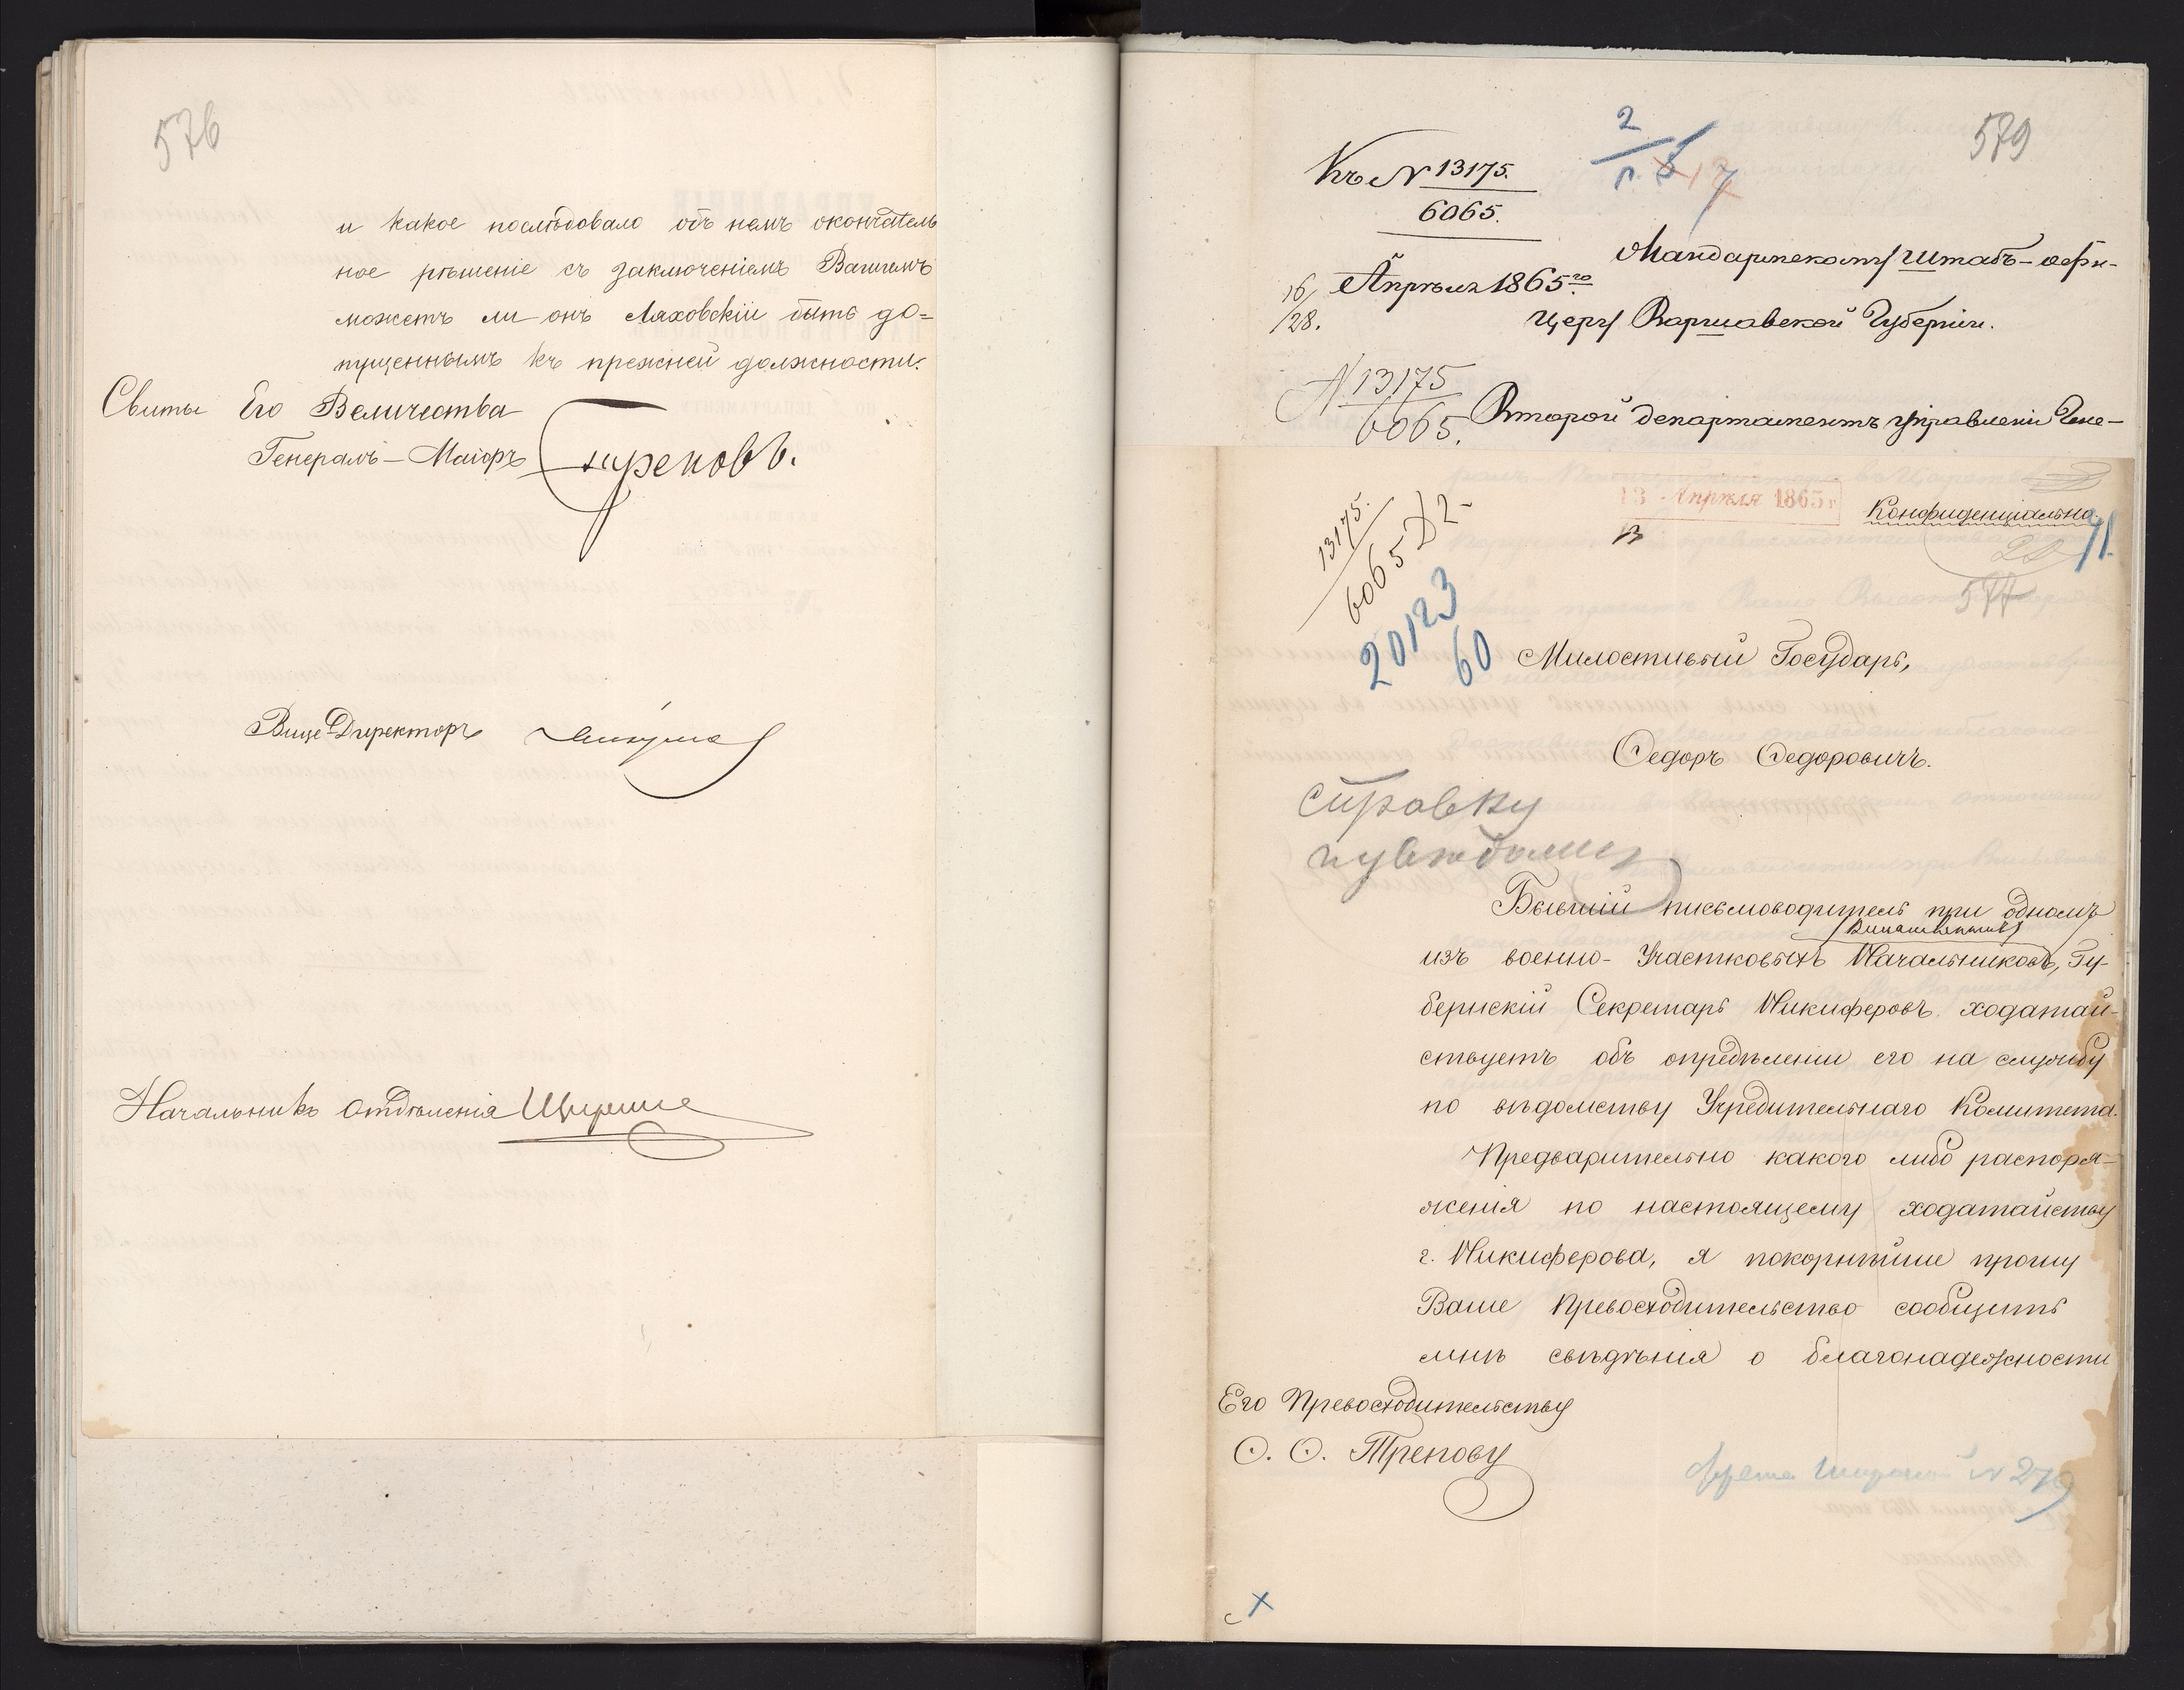 576
и какое послѣдовало объ немъ окончатель
ное рѣшеніе съ заключеніемъ Вашимъ
можетъ ли онъ Ляховскій быть до=
пущеннымъ къ прежней должности.
Свиты Его Величества
Генералъ-Маіоръ Треповъ.
Вице Директоръ
Начальникъ Отдѣленія
579
2
Къ N 13175.
6065.
Жандармскому Штабъ-офи-
16/28. Апрѣля 1865го
церу Варшавской Губерніи.
N 13175
6065.
Второй департаментъ управленія Гене-
13 Апрѣля 1865 г
Конфиденціально.
13175.
6065 Д2-
577
20123
60
Милостивый Государь,
Ѳедоръ Ѳедоровичъ.
справку
Бывшій письмоводитель при одномъ
изъ военно-Участковыхъ Начальниковъ, Гу-
бернскій Секретарь Никиферовъ ходатай-
ствуетъ объ опредѣленіи его на службу
по вѣдомству Учредительнаго Комитета.
Предварительно какого либо распоря-
женія по настоящему ходатайству
г. Никиферова, я покорнѣйше прошу
Ваше Превосходительство сообщить
мнѣ свѣдѣнія о благонадежности
Его Превосходительству
Ѳ. Ѳ. Трепову